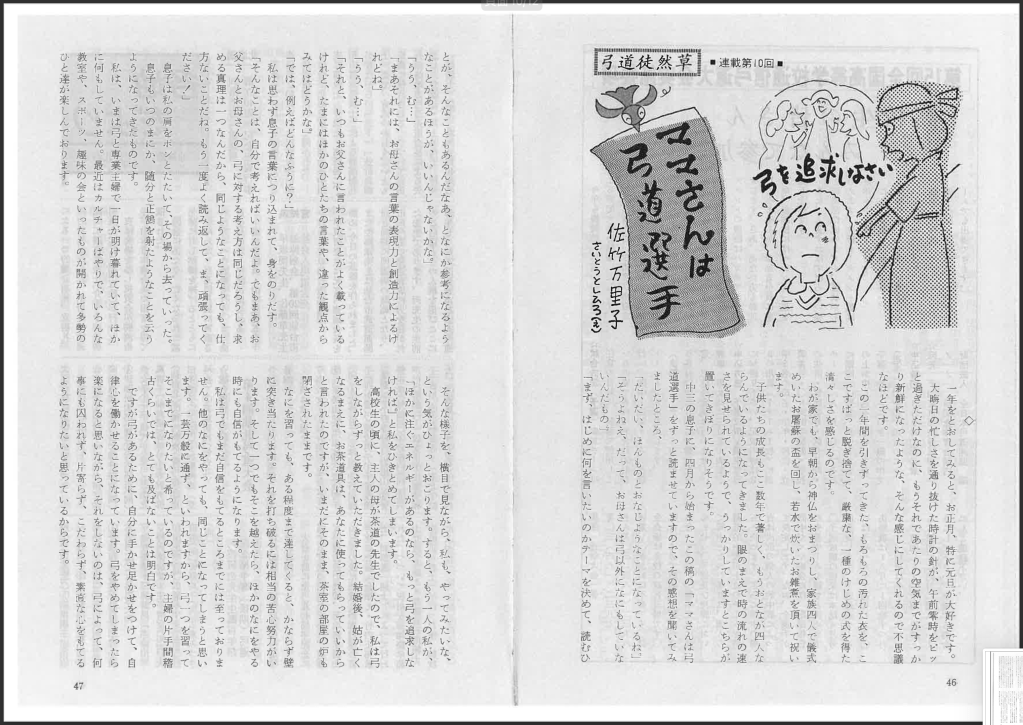 弓道徒然草
■連載第10回■
ママさんは
弓道選手
佐竹万里子
さいとうとしひろ(え)
弓を追求しなさい
一年をとおしてみると、お正月、特に元旦が大好きです。
大晦日の忙しさを通り抜けた時計の針が、午前零時をピッ
と過ぎただけなのに、もうそれであたりの空気までがすっか
り新鮮になったような、そんな感じにしてくれるので不思議
なほどです。
この一年間を引きずってきた、もろもろの汚れた衣を、こ
こですぱっと脱ぎ捨てて、厳粛な、一種のけじめの式を得た
清々しさを感じるのです。
わが家でも、早朝から神仏をおまつりし、家族四人で儀式
めいたお屠蘇の盃を回し、若水で炊いたお雑煮を頂いて祝い
ます。
子供たちの成長もここ数年で著しく、もうおとなが四人な
らんでいるようになってきました。眼のまえで時の流れの速
さを見せられているようで、うっかりしていますとこちらが
置いてきぼりになりそうです。
中三の息子に、四月から始まったこの稿の「ママさんは弓
道選手」をずっと読ませていますので、その感想を聞いてみ
ましたところ、
「だいたい、ほんものとおなじようなことになっているね」
「そうよねえ、だって、お母さんは弓以外になにもしていな
いんだもの」
「まず、はじめに何を言いたいのかテーマを決めて、読むひ
46
とが、そんなこともあるんだなあ、となにか参考になるよう
なことがあるほうが、いいんじゃないかな」
「うう、む…」
「まあそれには、お母さんの言葉の表現力と創造力によるけ
れどね」
「うう、む…」
「それと、いつもお父さんに言われたことがよく載っている
けれど、たまにはほかのひとたちの言葉や、違った観点から
みてはどうかな」
「では、例えばどんなふうに？」
私は思わず息子の言葉につり込まれて、身をのりだす。
「そんなことは、自分で考えればいいんだよ。でもまあ、お
父さんとお母さんの、弓に対する考え方は同じだろうし、求
める真理は一つなんだから、同じようなことになっても、仕
方ないことだね。もう一度よく読み返して、ま、頑張ってく
ださい！」
息子は私の肩をポンとたたいて、その場から去っていった。
息子もいつのまにか、随分と正鵠を射たようなことを云う
ようになってきたものです。
私は、いまは弓と専業主婦で一日が明け暮れていて、ほか
に何もしていません。最近はカルチャーばやりで、いろんな
教室や、スポーツ、趣味の会といったものが開かれて多勢の
ひと達が楽しんでおります。
そんな様子を、横目で見ながら、私も、やってみたいな、
という気がひょっとおこります。すると、もう一人の私が、
「ほかに注ぐエネルギーがあるのなら、もっと弓を追求しな
ければ」と私をひきとめてしまいます。
高校生の頃に、主人の母が茶道の先生でしたので、私は弓
をしながらずっと教えていただきました。結婚後、姑が亡く
なるまえに、お茶道具は、あなたに使ってもらっていいから
と言われたのですが、いまだにそのまま、茶室の部屋の炉も
閉ざされたままです。
なにを習っても、ある程度まで達してくると、かならず壁
に突き当たります。それを打ち破るには相当の苦心努力がい
ります。そして一つでもそこを越えたら、ほかのなにをやる
時にも自信がもてるようになります。
私は弓でもまだ自信をもてるところまでには至っておりま
せん。他のなにをやっても、同じことになってしまうと思い
ます。一芸万般に通ず、といわれますから、弓一つを習って
そこまでになりたいと希っているのですが、主婦の片手間稽
古くらいでは、とても及ばないことは明白です。
ですが弓があるために、自分に手かせ足かせをつけて、自
律心を働かせることになっています。弓をやめてしまったら
楽になると思いながら、それをしないのは、弓によって、何
事にも囚われず、片寄らず、こだわらず、素直な心をもてる
ようになりたいと思っているからです。
47